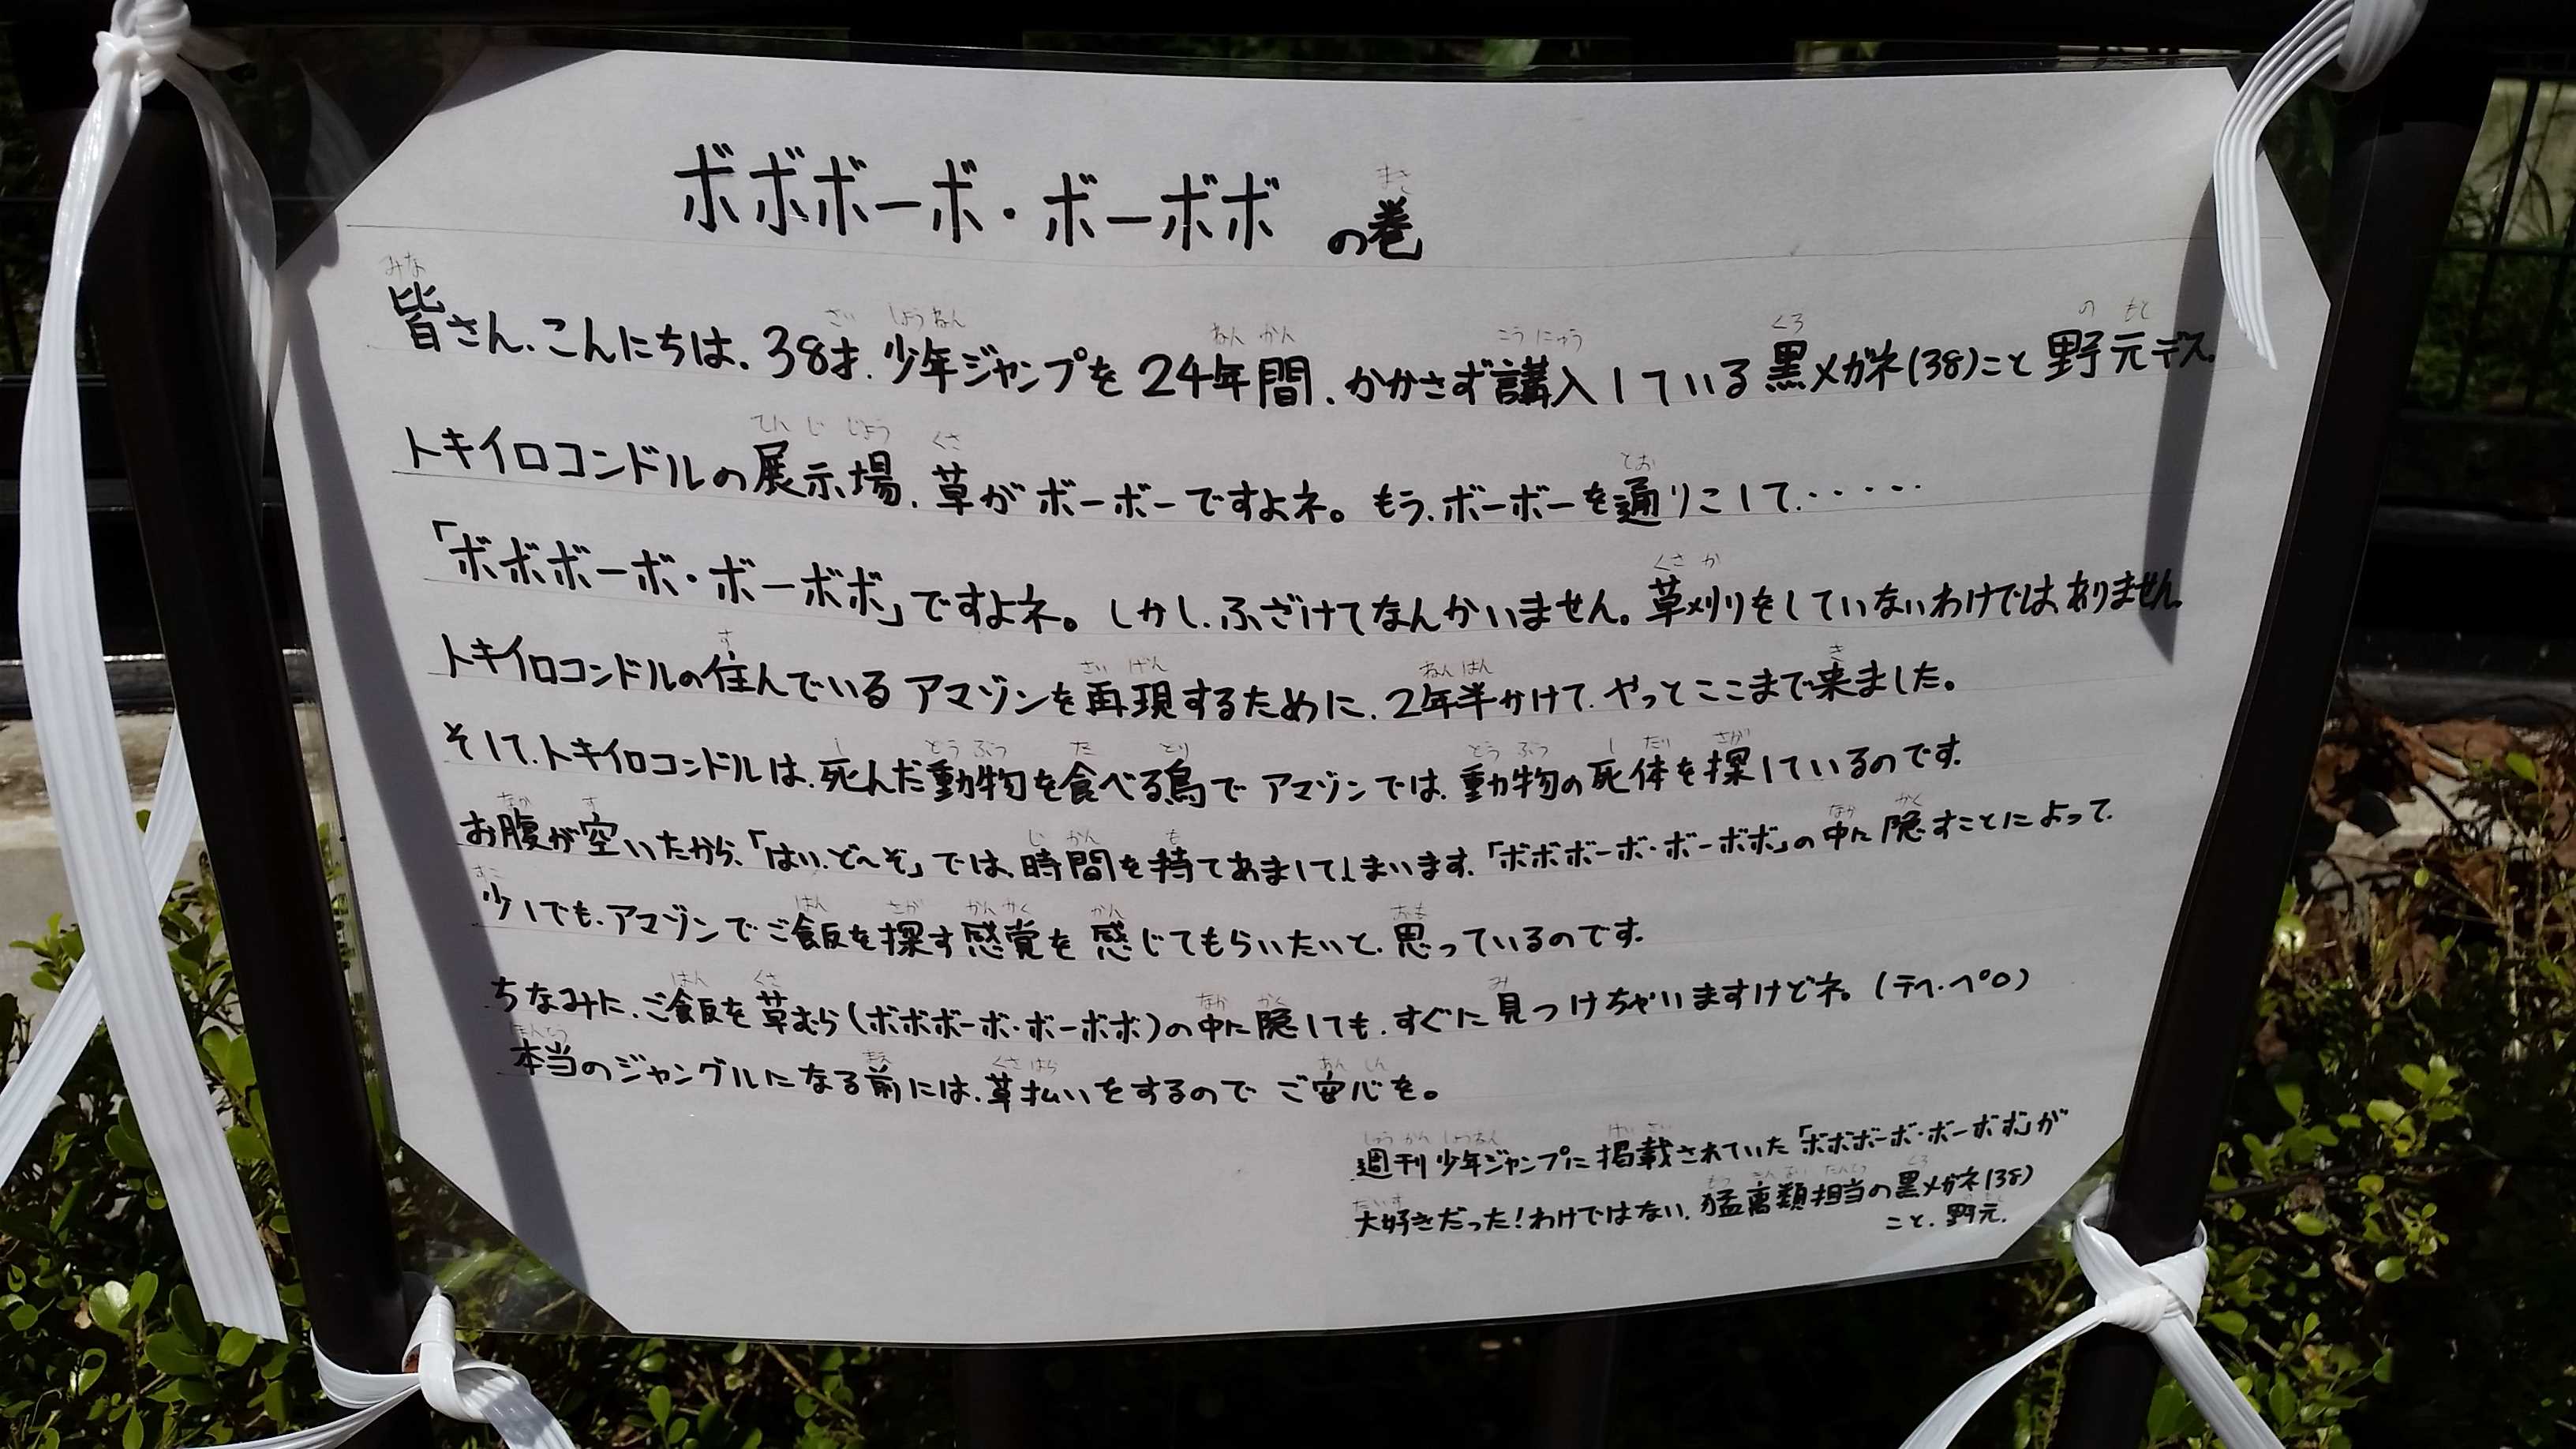 ボボボーボ・ボーボボ の巻
皆さん、こんにちは。38才、少年ジャンプを24年間、かかさず講入している黒メガネ(38)こと野元デス。
トキイロコンドルの展示場、草がボーボーですよネ。もう、ボーボーを通りこして、・・・・・
「ボボボーボ・ボーボボ」ですよネ。しかし、ふざけてなんかいません。草刈りをしていないわけではありません。
トキイロコンドルの住んでいるアマゾンを再現するために、2年半かけて、やっとここまで来ました。
そして、トキイロコンドルは、死んだ動物を食べる鳥でアマゾンでは、動物の死体を探しているのです。
お腹が空いたから、「はい、ど〜ぞ」では、時間を持てあましてしまいます。「ボボボーボ・ボーボボ」の中に隠すことによって、
少しでも、アマゾンでご飯を探す感覚を感じてもらいたいと、思っているのです。
ちなみに、ご飯を草むら(ボボボーボ・ボーボボ)の中に隠しても、すぐに見つけちゃいますけどネ。(テヘ・ペロ)
本当のジャングルになる前には、草払いをするのでご安心を。
週刊少年ジャンプに掲載されていた「ボボボーボ・ボーボボ」が
大好きだった!わけではない、猛禽類担当の黒メガネ(38)
こと、野元。